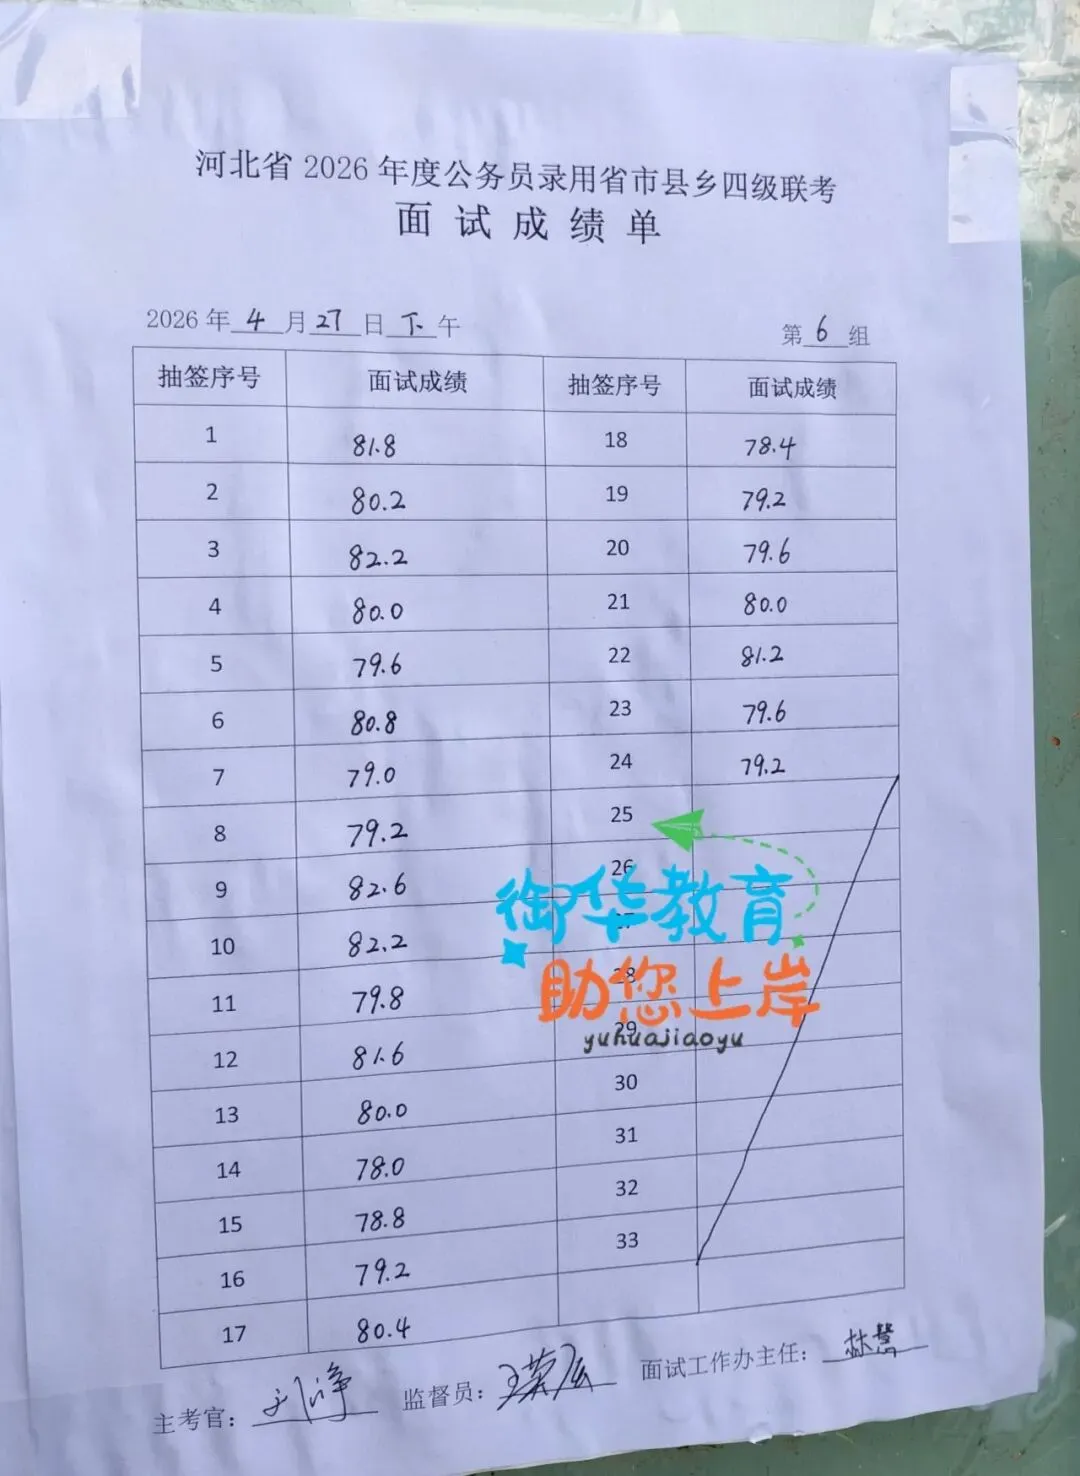 河北省2026年度公务员录用省市县乡四级联考
面试成绩单
2026年4月27日下午 第6组
抽签序号 面试成绩 抽签序号 面试成绩
1 81.8 18 78.4
2 80.2 19 79.2
3 82.2 20 79.6
4 80.0 21 80.0
5 79.6 22 81.2
6 80.8 23 79.6
7 79.0 24 79.2
8 79.2 25
9 82.6 26
10 82.2 27
11 79.8 28
12 81.6 29
13 80.0 30
14 78.0 31
15 78.8 32
16 79.2 33
17 80.4
御华教育
助您上岸
yuhuajiaoyu
主考官： 监督员： 面试工作办主任：林慧